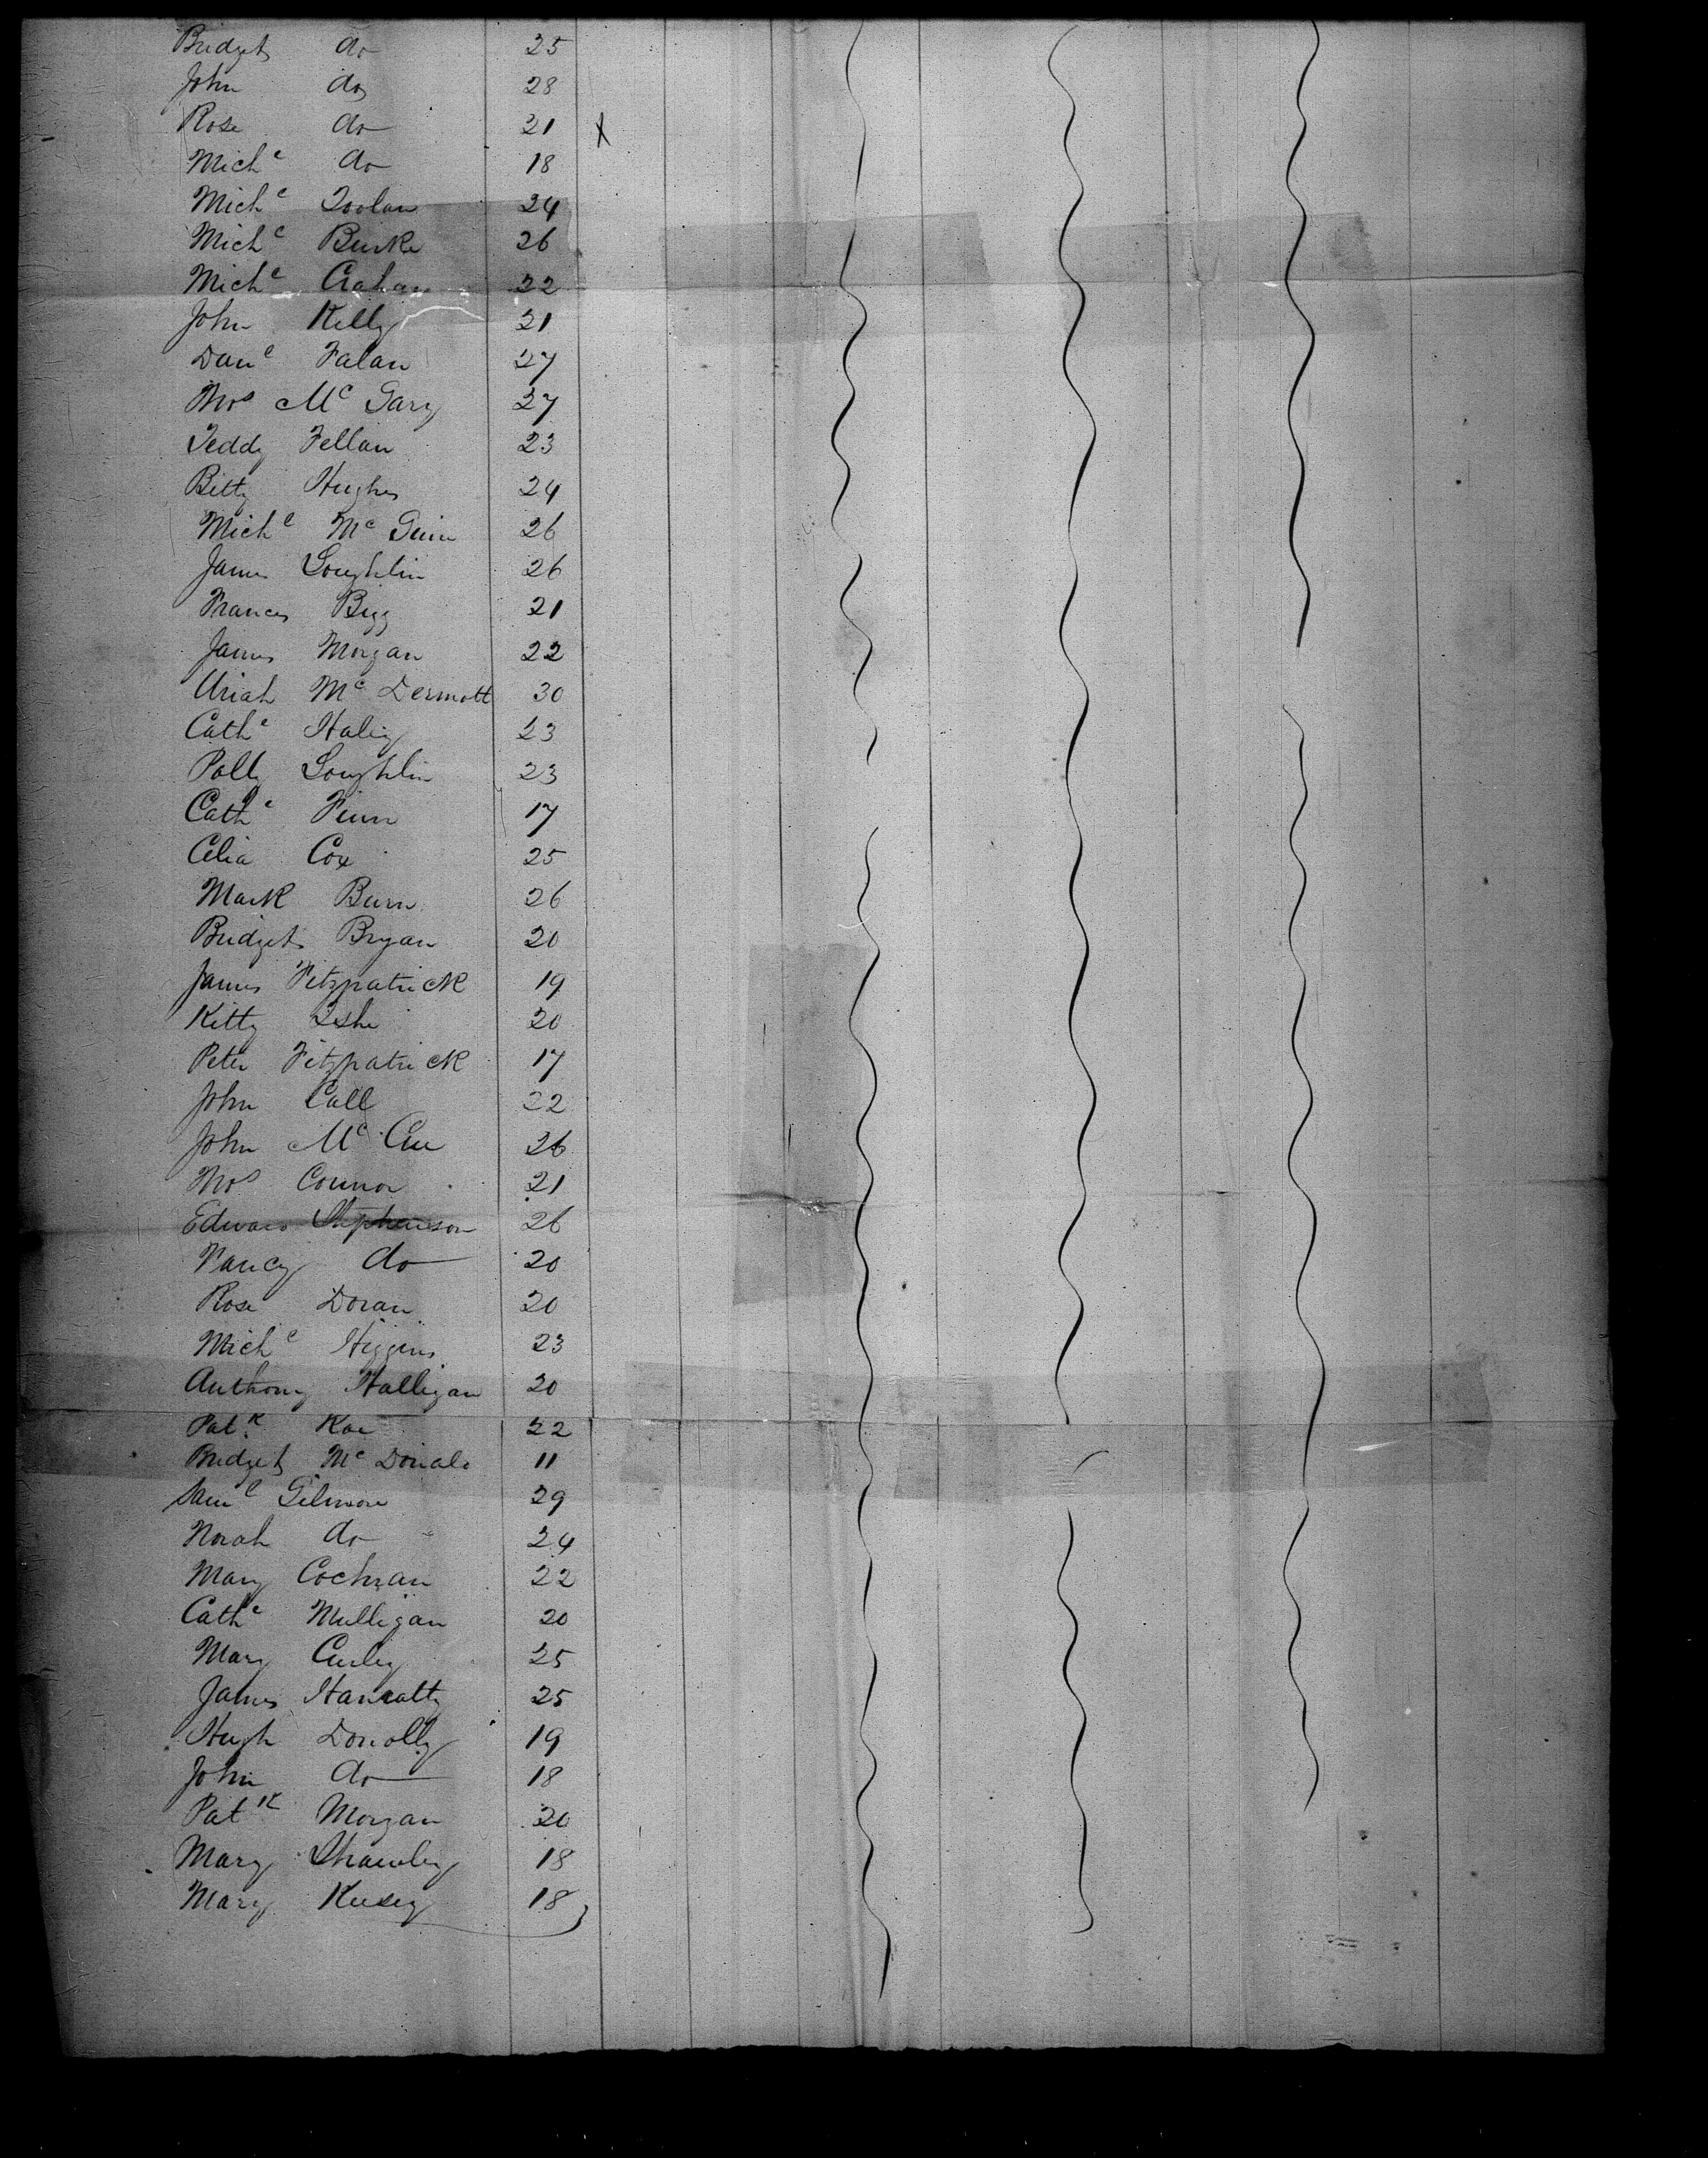 Bridget do 25
John do 28
Rose do 21 x
Mich.l do 18
Mich.l Toolan 24
Mich.l Burke 26
Mich.l 22
John Kelly 21
Dan.l Falan 27
Thos Mc Gary 27
Teddy Fellan 23
Bitty Hughes 24
Mich.l Mc Guin 26
James Loughlin 26
Frances Bigg 21
James Morgan 22
Uriah Mc Dermott 30
Cath.e Haley 23
Polly Loughlin 23
Cath.e Finn 17
Celia Cox 25
Mark Burn 26
Bridget Bryan 20
James Fitzpatrick 19
Kitty 20
Peter Fitzpatrick 17
John Call 22
John Mc Cue 26
Thos Connor 21
Edward Stephenson 26
Nancy do 20
Rose Doran 20
Mich.l Higgins 23
Anthony Halligan 20
Pat.k 22
Bridget Mc Donald 11
Sam.l Gilmore 29
Norah do 24
Mary Cochran 22
Cath.e Mulligan 20
Mary Curley 25
James Hanratty 25
Hugh Donolly 19
John do 18
Pat.k Morgan 20
Mary 18
Mary 18